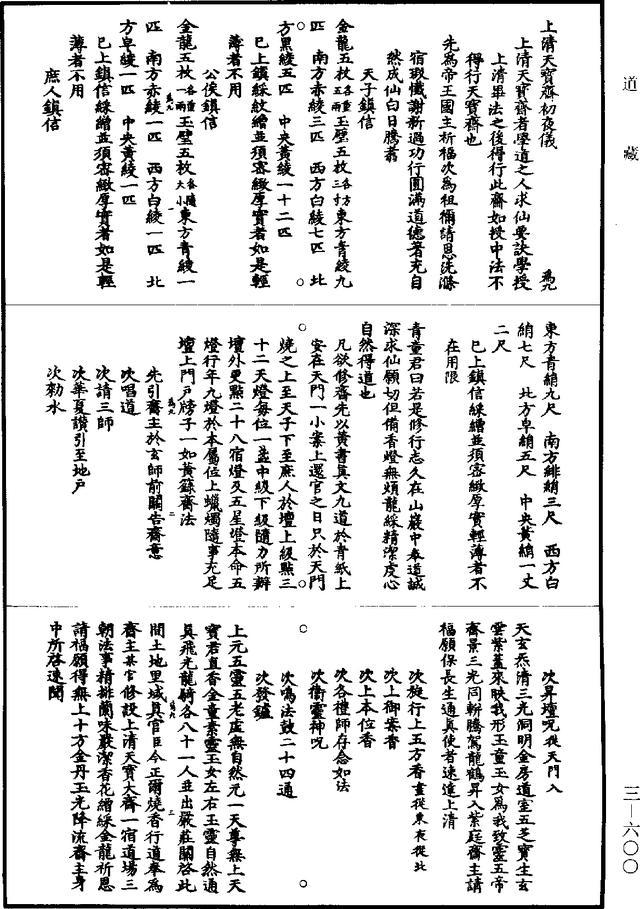 道藏
三—六〇〇
上清天寶齋初夜儀
爲九
上清天寶齋者學道之人求仙要訣學授
上清畢法之後得行此齋如授中法不
得行天寶齋也
先爲帝王國主祈福次爲祖禰請恩洗滌
宿瑕懺謝新過功行圓滿道德著充自
然成仙白日騰翥
天子鎮信
金龍五枚各重五兩玉璧五枚各方三寸東方青綾九
匹　南方赤綾三匹　西方白綾七匹　北
方黑綾五匹　中央黃綾一十二匹
已上鎮綵紋繒並須密緻厚實者如是輕
薄者不用
公侯鎮信
金龍五枚各重一兩玉璧五枚各隨大小東方青綾一
匹　南方赤綾一匹　西方白綾一匹　北
方皁綾一匹　中央黃綾一匹
已上鎮信綵繒並須密緻厚實者如是輕
薄者不用
庶人鎮信
東方青綃九尺　南方緋綃三尺　西方白
綃七尺　北方皁綃五尺　中央黃綃一丈
二尺
已上鎮信綵繒並須密緻厚實輕薄者不
在用限
青童君曰若是修行志久在山巖中奉道誠
深求仙願切但備香燈無煩龍綵精潔虔心
自然得道也
凡欲修齋先以黃書真文九道於青紙上
安在天門一小案上還官之日只於天門
燒之上至天子下至庶人於壇上級點三
十二天燈每位一盞中級下級隨力所辦
壇外更點二十八宿燈及五星燈本命五
燈行年九燈於本屬位上蠟燭隨事充足
壇上門戶牓子一如黃籙齋法
爲九　二
先引齋主於玄師前關告齋意
次唱道
次請三師
次華夏讚引至地戶
次勑水
次昇壇呪從天門入
天玄炁清三光洞明金房道室五芝寶生玄
雲紫蓋來映我形玉童玉女爲我致靈五帝
齋景三光同軿騰駕龍鶴昇入紫庭齋主請
福願保長生通真使者速達上清
次旋行上五方香畫從東夜從北
次上御案香
次上本位香
次各禮師存念如法
次衛靈神呪
次鳴法鼓二十四通
次發鑪
上元五靈五老虛無自然元一天尊無上天
寶君直香金童素靈玉女左右玉靈自然通
真飛光龍騎各八十一人並出嚴莊關啓此
爲九　三
間土地里域真官臣今正爾燒香行道奉爲
齋主某官修設上清天寶大齋一宿道場三
朝法事精排蘭味嚴潔香花繒綵金龍祈恩
請福願得無上十方金丹玉光降流齋主身
中所啓速聞